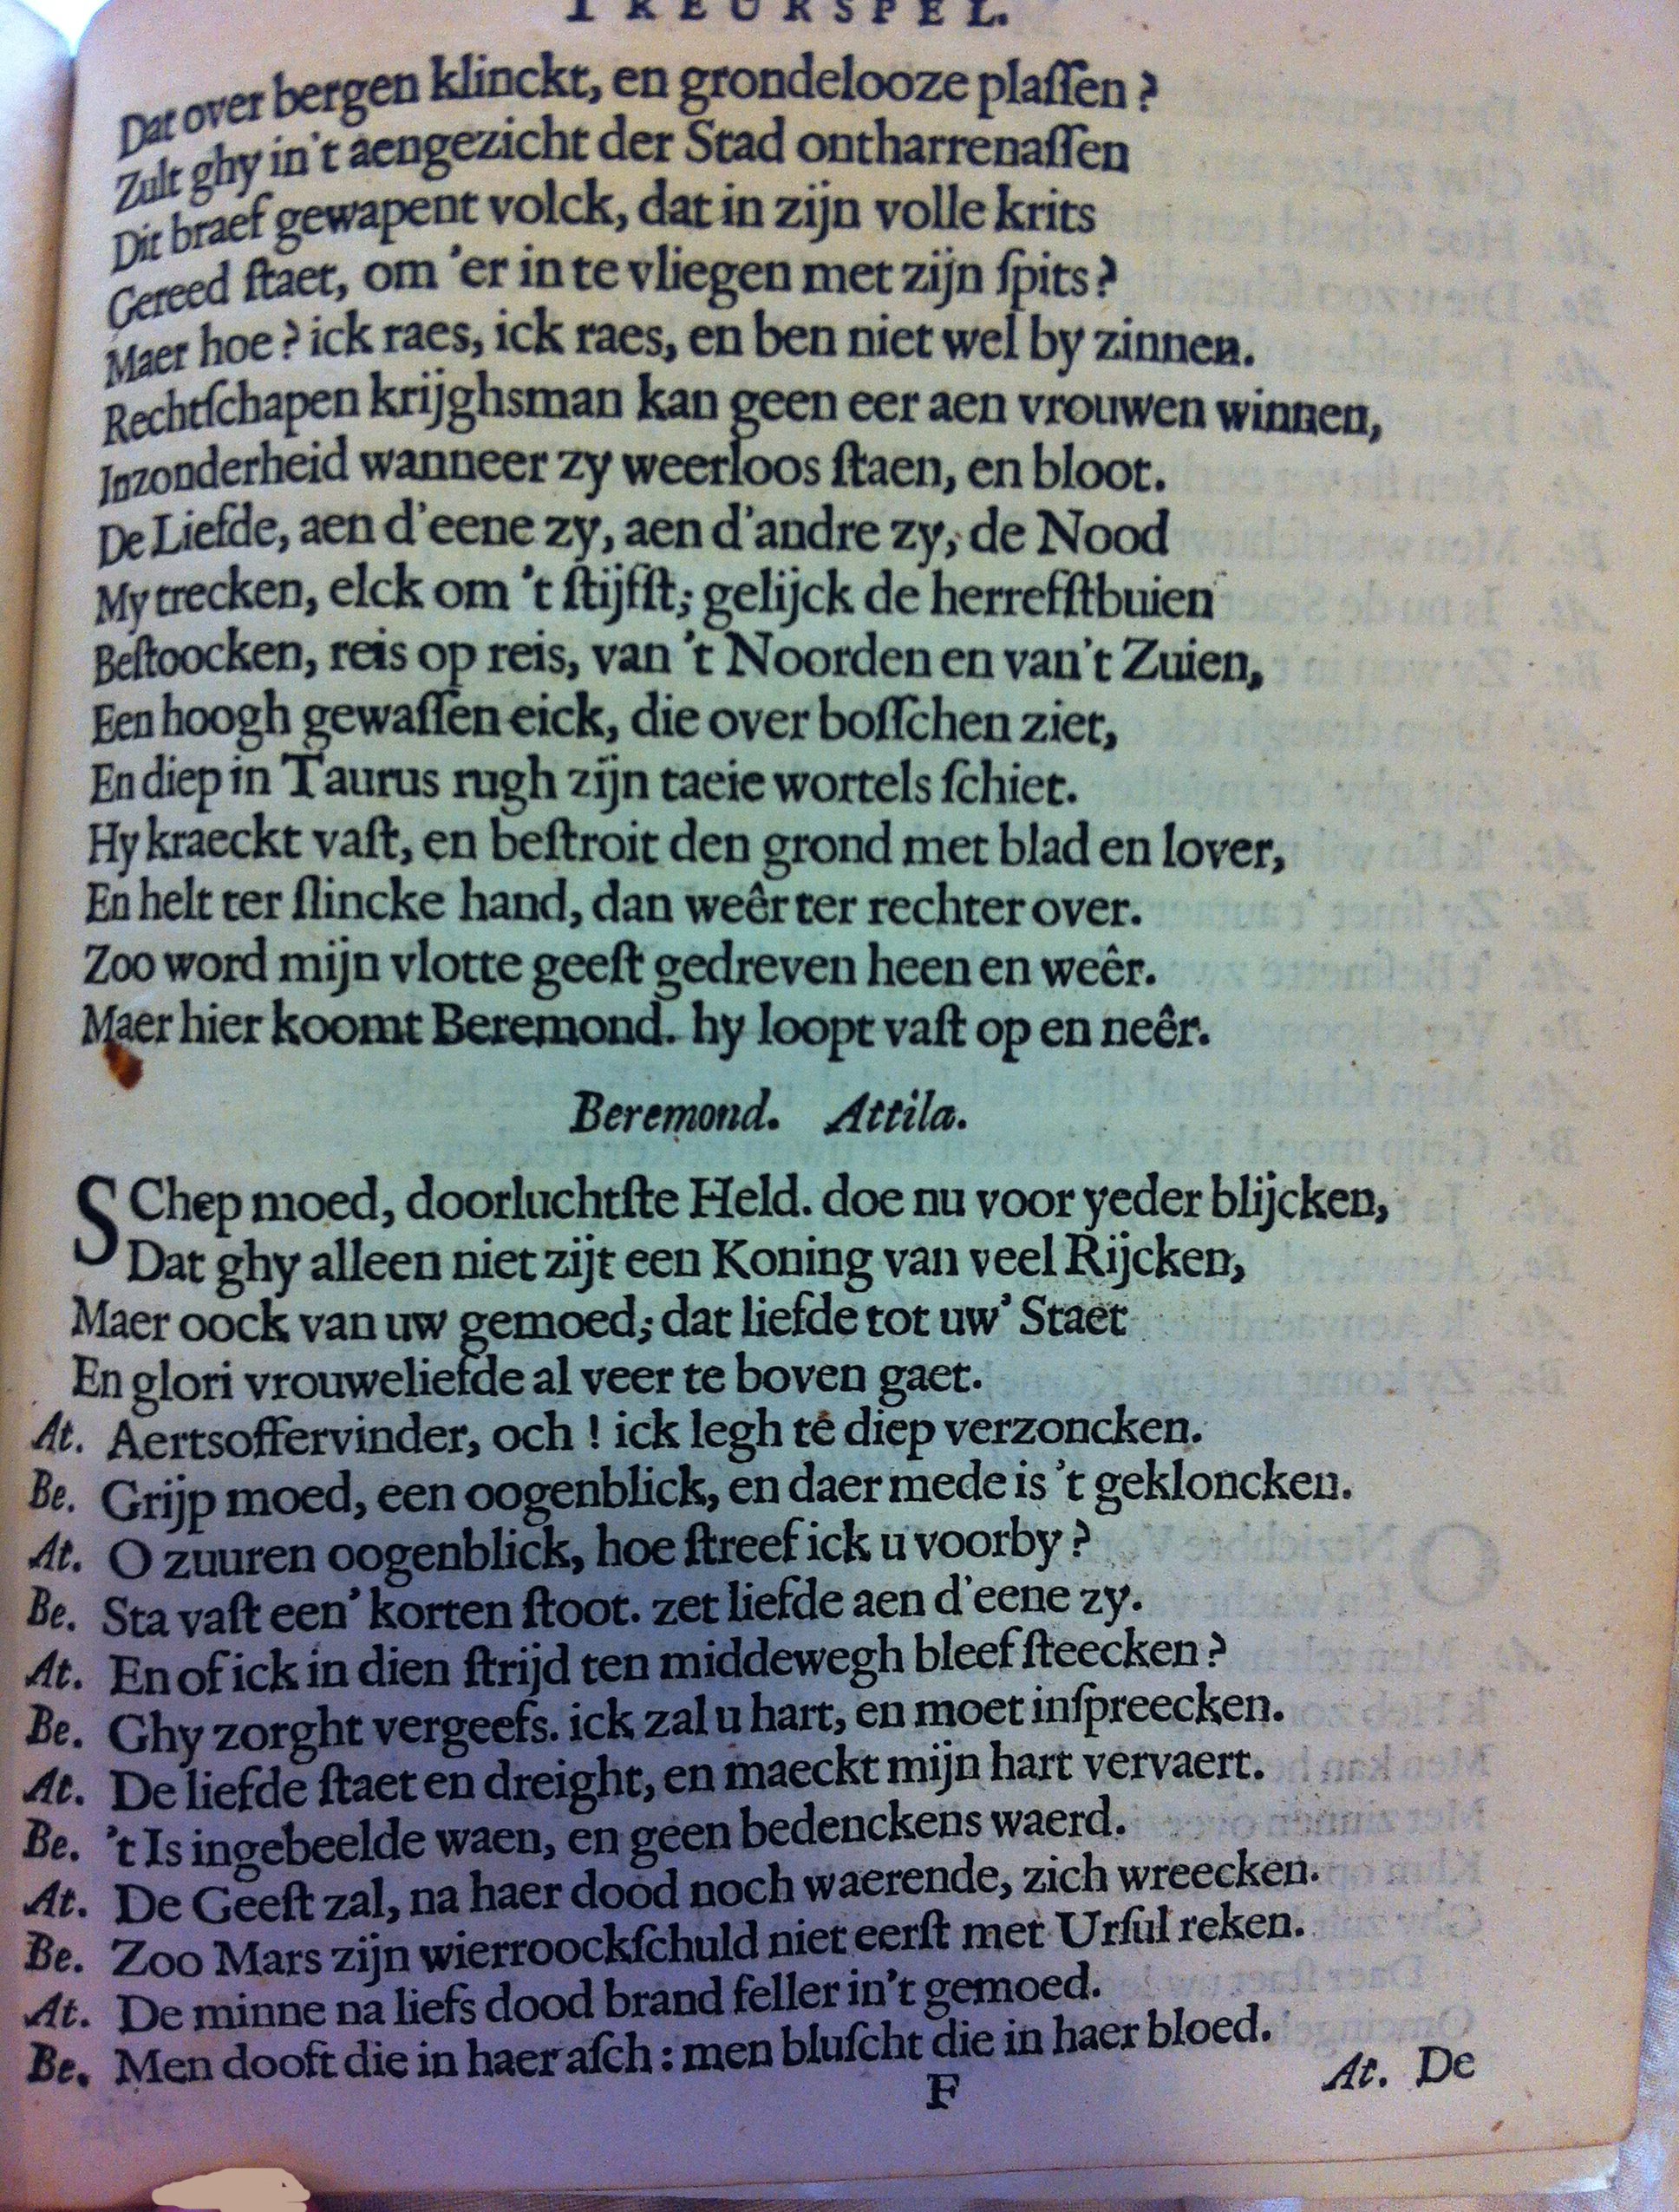 TREURSPEL.
Dat over bergen klinckt, en grondelooze plaſſen?
Zult ghy in't aengezicht der Stad ontharrenaſſen
Dit braef gewapent volck, dat in zijn volle krits
Gereed ſtaet, om 'er in te vliegen met zijn ſpits?
Maer hoe? ick raes, ick raes, en ben niet wel by zinnen.
Rechtſchapen krijghsman kan geen eer aen vrouwen winnen,
Inzonderheid wanneer zy weerloos ſtaen, en bloot.
De Liefde, aen d'eene zy, aen d'andre zy, de Nood
My trecken, elck om 't ſtijfſt; gelijck de herrefſtbuien
Beſtoocken, reis op reis, van 't Noorden en van't Zuien,
Een hoogh gewaſſen eick, die over boſſchen ziet,
En diep in Taurus rugh zijn taeie wortels ſchiet.
Hy kraeckt vaſt, en beſtroit den grond met blad en lover,
En helt ter ſlincke hand, dan weêr ter rechter over.
Zoo word mijn vlotte geeſt gedreven heen en weêr.
Maer hier koomt Beremond. hy loopt vaſt op en neêr.
Beremond. Attila.
SChep moed, doorluchtſte Held. doe nu voor yeder blijcken,
Dat ghy alleen niet zijt een Koning van veel Rijcken,
Maer oock van uw gemoed; dat liefde tot uw' Staet
En glori vrouweliefde al veer te boven gaet.
At. Aertsoffervinder, och! ick legh te diep verzoncken.
Be. Grijp moed, een oogenblick, en daer mede is 't gekloncken.
At. O zuuren oogenblick, hoe ſtreef ick u voorby?
Be. Sta vaſt een' korten ſtoot. zet liefde aen d'eene zy.
At. En of ick in dien ſtrijd ten middewegh bleef ſteecken?
Be. Ghy zorght vergeefs. ick zal u hart, en moet inſpreecken.
At. De liefde ſtaet en dreight, en maeckt mijn hart vervaert.
Be. 't Is ingebeelde waen, en geen bedenckens waerd.
At. De Geeſt zal, na haer dood noch waerende, zich wreecken.
Be. Zoo Mars zijn wierroockſchuld niet eerſt met Urſul reken.
At. De minne na liefs dood brand feller in't gemoed.
Be. Men dooft die in haer aſch: men bluſcht die in haer bloed.
F
At. De